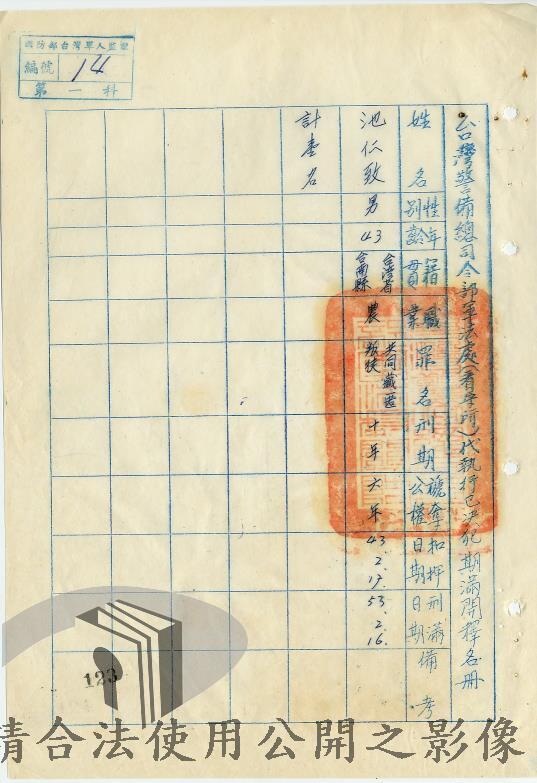 國防部台灣軍人監獄
編號 14
第一科
台灣警備總司令部軍法處(看守所)代執行已決犯期滿開釋名冊
姓名 性別 年齡 籍貫 職業 罪名 刑期 褫奪公權 扣押日期 刑滿日期 備考
池仁致 男 43 台灣省台南縣 農 共同藏匿叛徒 十年 六年 43.2.17. 53.2.16.
計壹名
123
請合法使用公開之影像